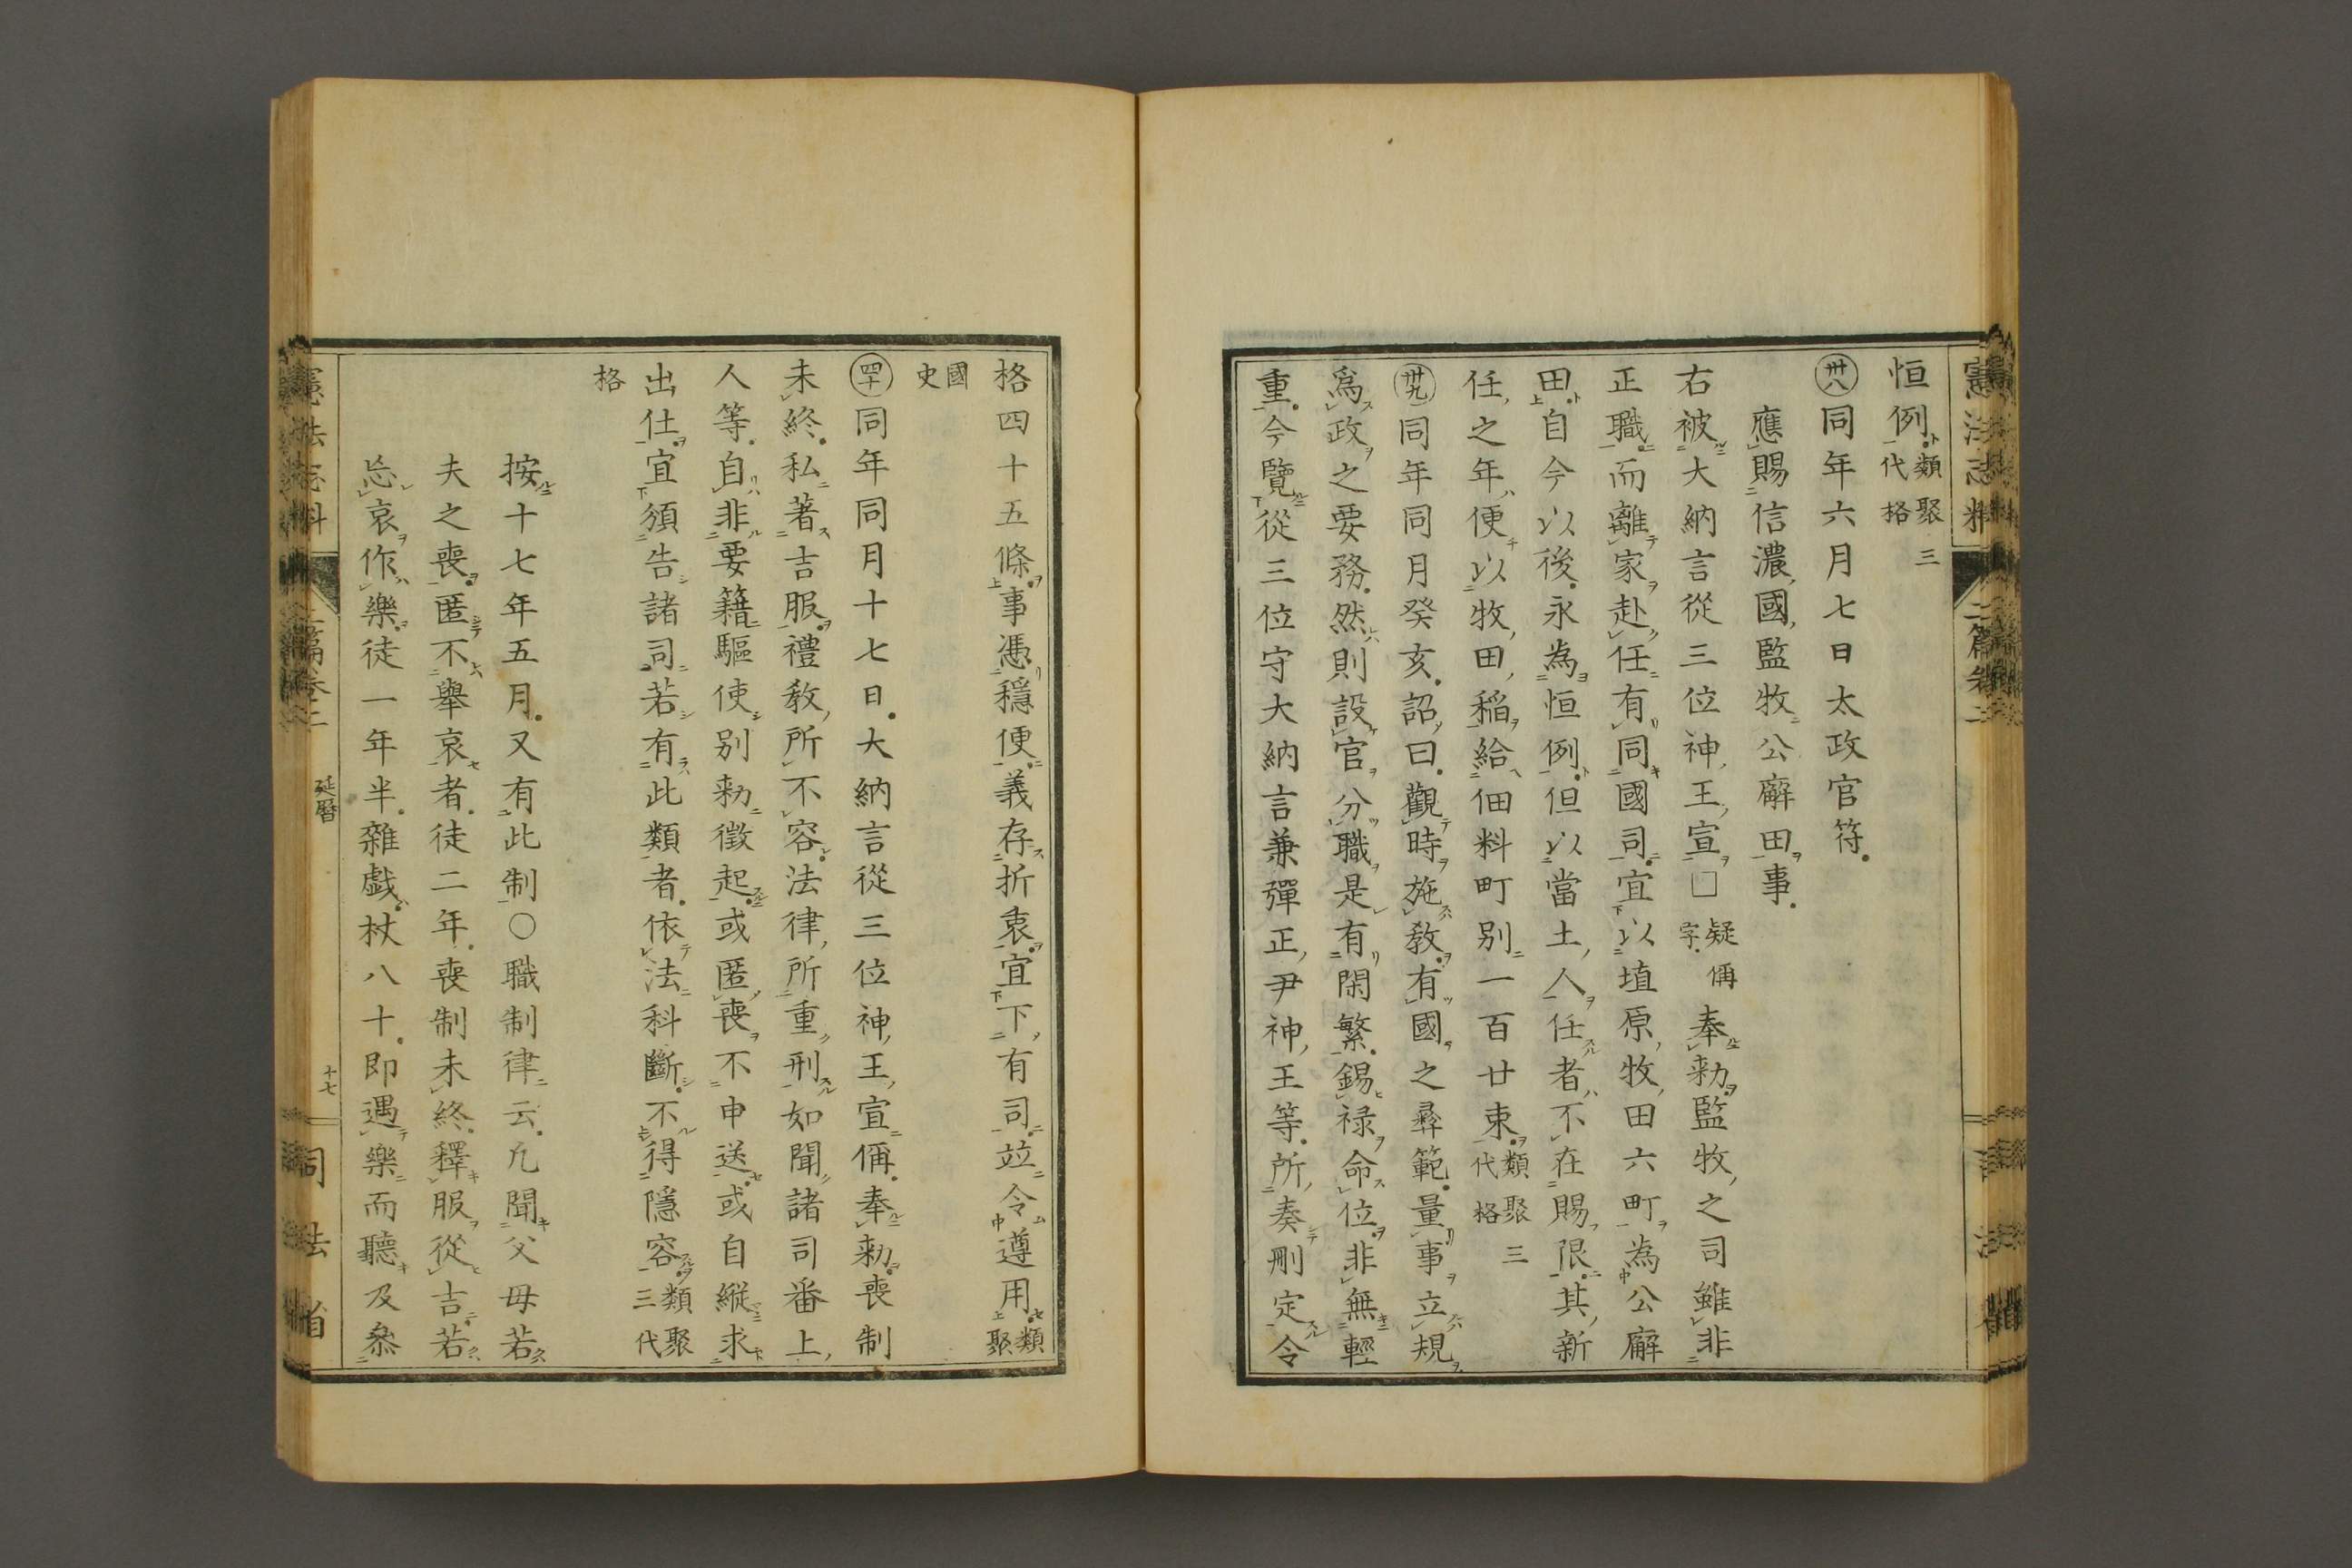 恒例類聚三代格
㊳同年六月七日太政官符
應賜信濃國監牧公廨田事
右被大納言從三位神王宣□疑偁字奉勅監牧之司雖非
正職而離家赴任有同國司宜以埴原牧田六町為公廨
田自今以後永為恒例但以當土人任者不在賜限其新
任之年便以牧田稲給佃料町別一百廿束類聚三代格
㊴同年同月癸亥詔曰觀時施教有國之彜範量事立規
爲政之要務然則設官分職是有閑繁錫禄命位非無輕
重今覽從三位守大納言兼彈正尹神王等所奏刪定令
格四十五條事憑穩便義存折衷宜下有司竝令遵用類聚
國史
㊵同年同月十七日大納言從三位神王宣偁奉勅喪制
未終私著吉服禮教所不容法律所重刑如聞諸司番上
人等自非要籍驅使別勅徵起或匿喪不申送或自縦求
出仕宜頒告諸司若有此類者依法科斷不得隱容類聚三代
格
按十七年五月又有此制○職制律云凢聞父母若
夫之喪匿不舉哀者徒二年喪制未終釋服從吉若
忘哀作樂徒一年半雜戯杖八十即遇樂而聽及叅
延暦
十七